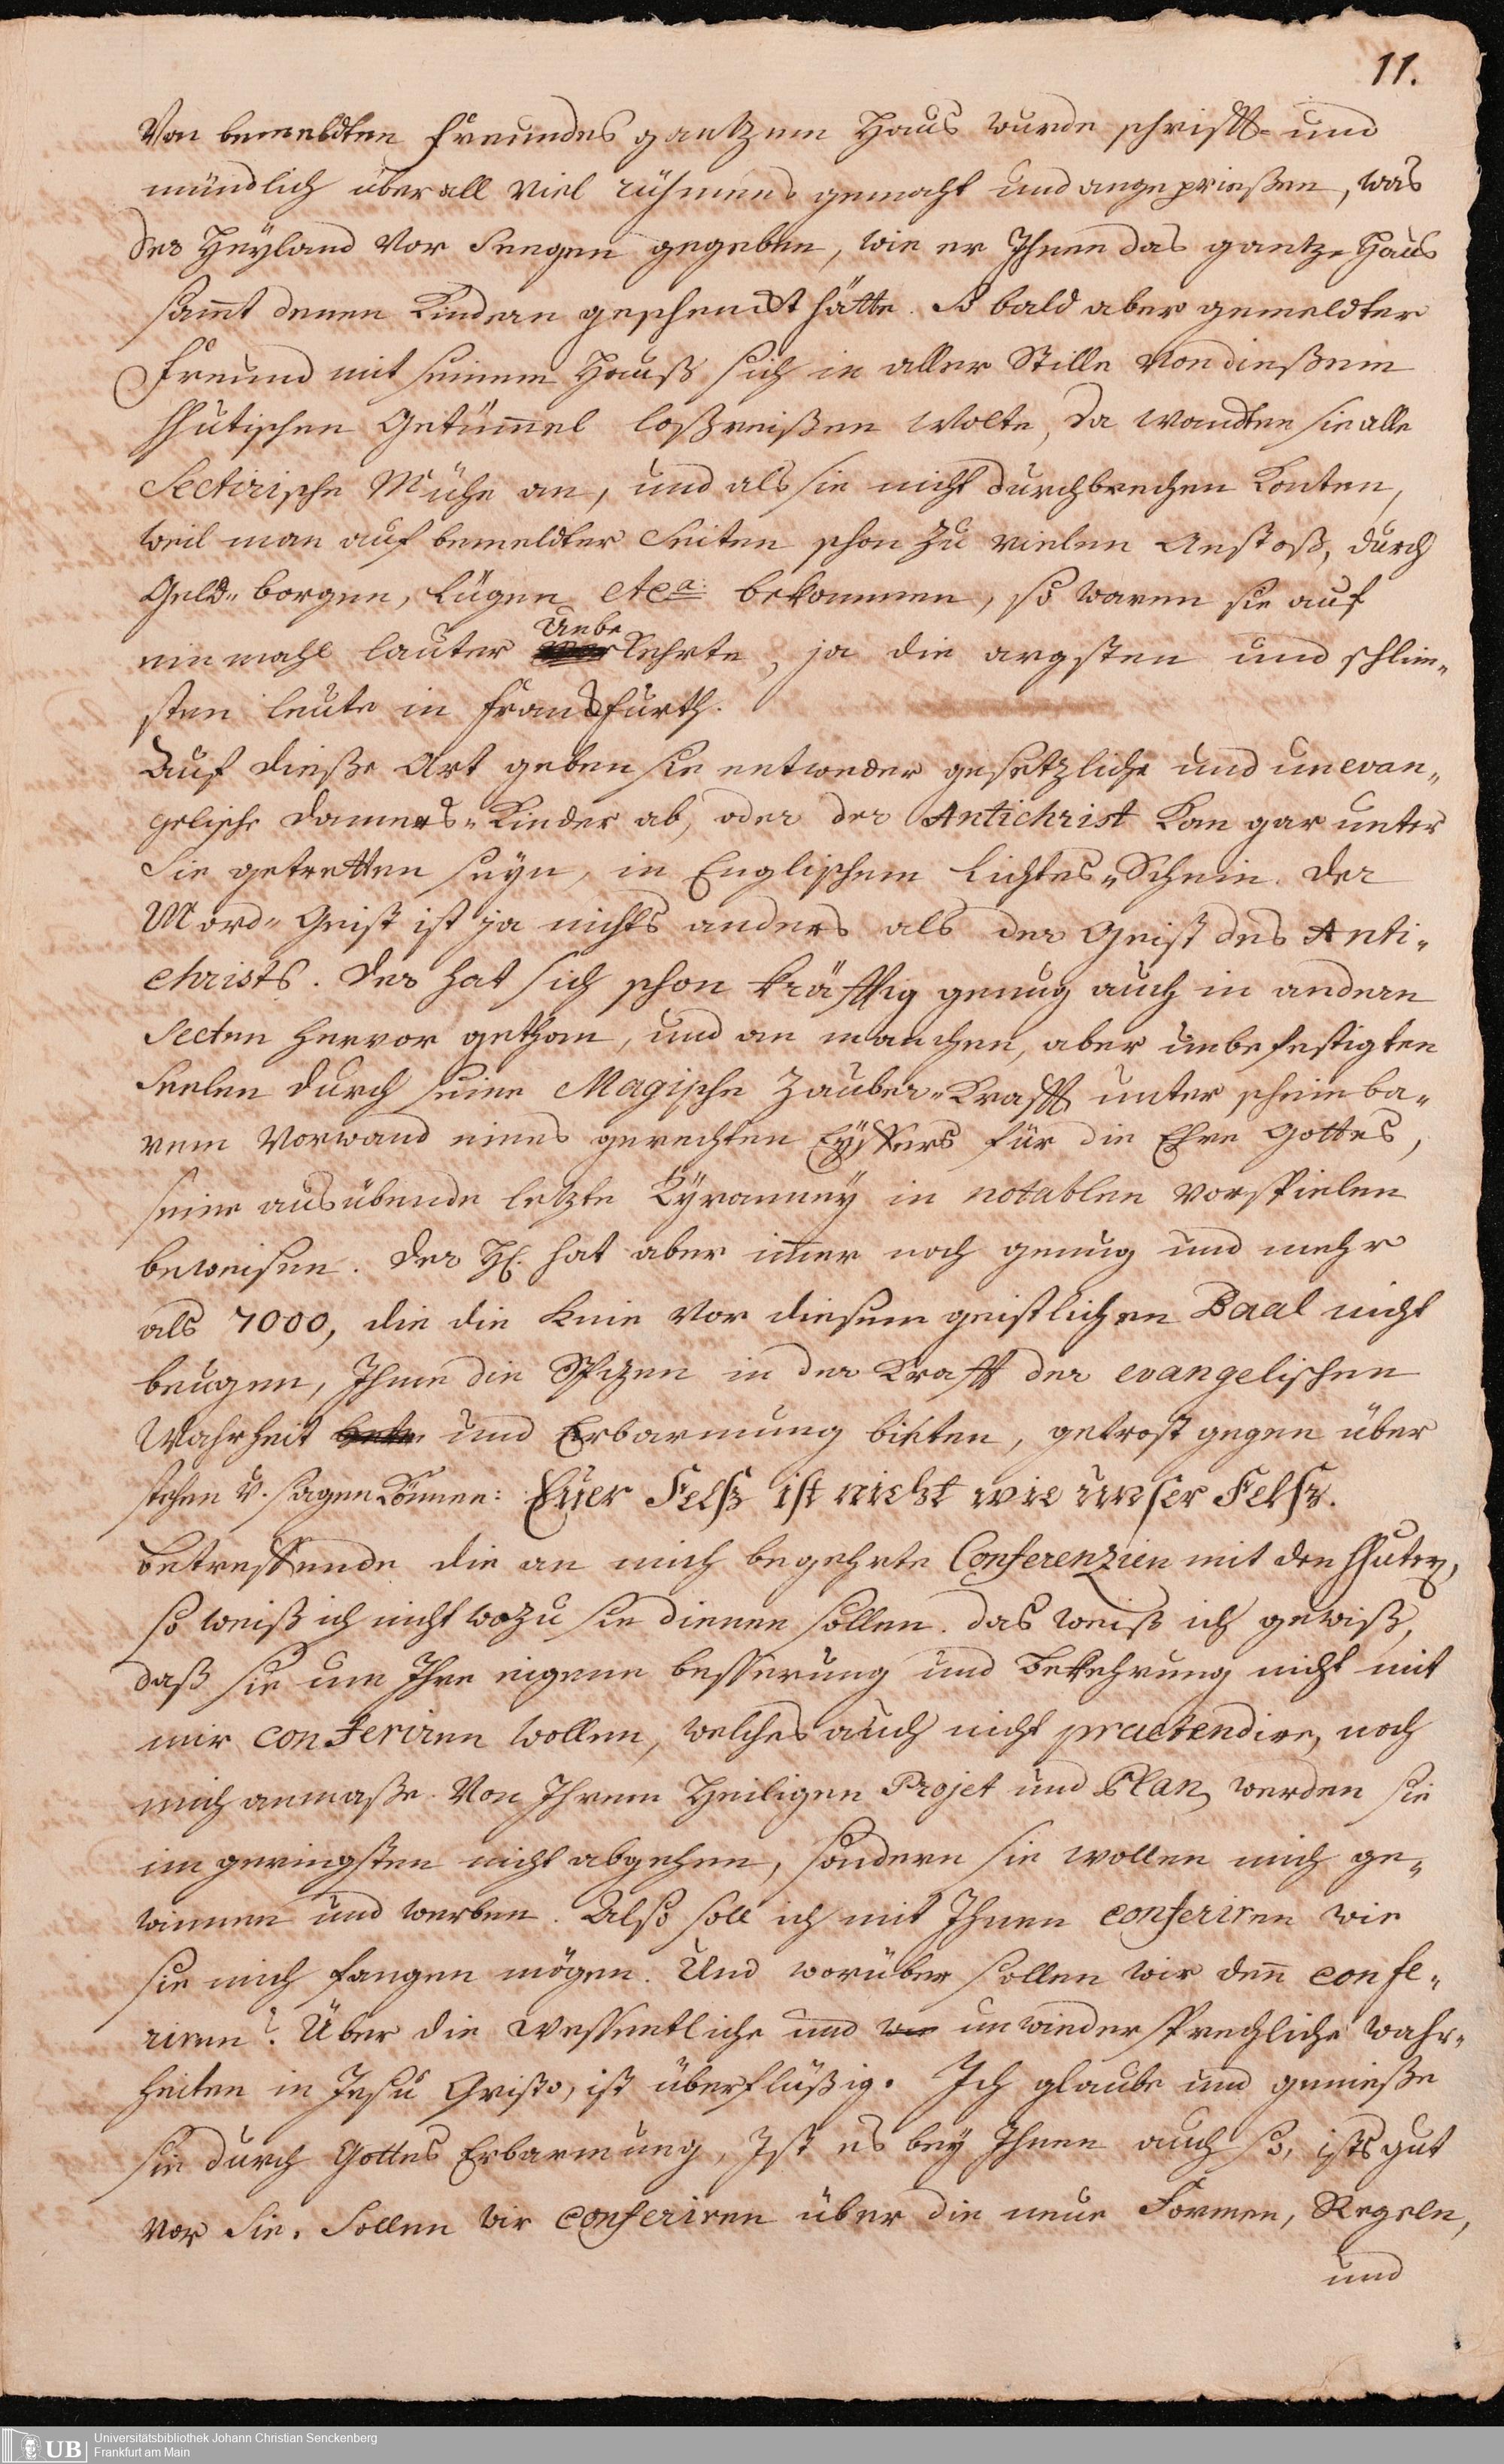 11.
Von bemeldten Freundes gantzem Haus wurde schrifft- und
mündlich überall viel rühmens gemacht und angeprießen, was
der Heyland vor Seegen gegeben, wie er Ihnen das gantze Haus
sam̄t denen Kindern geschenckt hätte. So bald aber gemeldter
Freund mit seinem Hauß sich in aller Stille von dießem
Hhutischen Getüm̄el loßreißen wolte, da wandten sie alle
Sectirische Mühe an, und als sie nicht durchbrechen konten,
weil man auf bemeldter Seiten schon zu vielen Anstoß, durch
Geld-borgen, Lügen etca: bekommen, so waren sie auf
einmahl lauter Unbekehrte, ja die argsten und schlim-
sten Leute in Franckfurth.
Auf dieße Art geben sie entweder gesetzliche und unevan-
gelische Donners-Kinder ab, oder der Antichrist kan gar unter
Sie getretten seyn, in Englischem Lichtes-Schein. Der
Mord-Geist ist ja nichts anders als der Geist des Anti-
christs. Der hat sich schon kräfftig genug auch in andern
Secten hervor gethan, und an manchen, aber unbefestigten
Seelen durch seine Magische Zauber-Krafft unter scheinba-
rem Vorwand eines gerechten Eyffers für die Ehre Gottes,
seine ausübende letzte Tyranney in notablen Vorspielen
beweisen. Der H. hat aber im̄er noch genug und mehr
als 7000, die die Knie vor diesem geistlichen Baal nicht
beugen, Ihme die Spizen in der Krafft der evangelischen
Wahrheit und Erbarmung bieten, getrost gegen über
stehen u. sagen können: Euer Felß ist nicht wie unser Felß.
Betreffende die an mich begehrte Conferenzien mit den Hhutern,
so weiß ich nicht wozu sie dienen sollen. das weiß ich gewiß,
daß sie um Ihre eigene besserung und Bekehrung nicht mit
mir conferiren wollen, welches auch nicht praetendire, noch
mich anmaße. Von Ihrem Heiligen Projet und Plan, werden sie
im geringsten nicht abgehen, sondern sie wollen mich ge-
winnen und werben. Also soll ich mit Ihnen conferiren wie
sie mich fangen mögen. Und worüber sollen wir den̄ confe-
riren? Über die wessentliche und unwiedersprechliche Wahr-
heiten in Jesu Christo, ist überflüßig. Ich glaube und genieße
sie durch Gottes Erbarmung, Ist es bey Ihnen auch so, ists gut
vor Sie. Sollen wir conferiren über die neue Formen, Regeln,
und
Universitätsbibliothek Johann Christian Senckenberg
Frankfurt am Main
UB